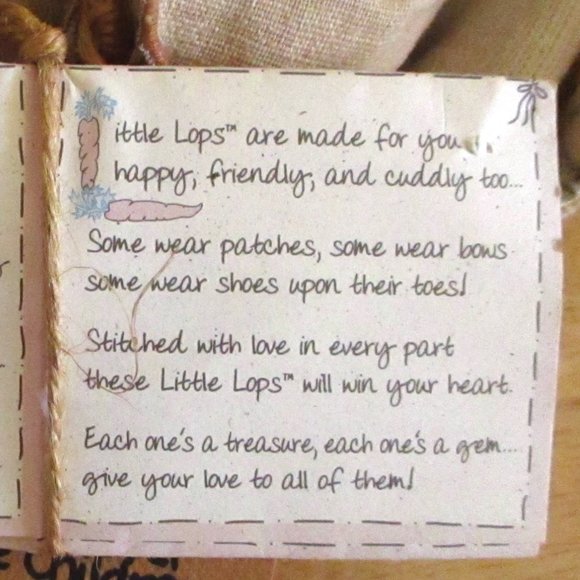 Little Lops™ are made for you...
happy, friendly, and cuddly too...
Some wear patches, some wear bows
some wear shoes upon their toes!
Stitched with love in every part
these Little Lops™ will win your heart.
Each one's a treasure, each one's a gem...
give your love to all of them!